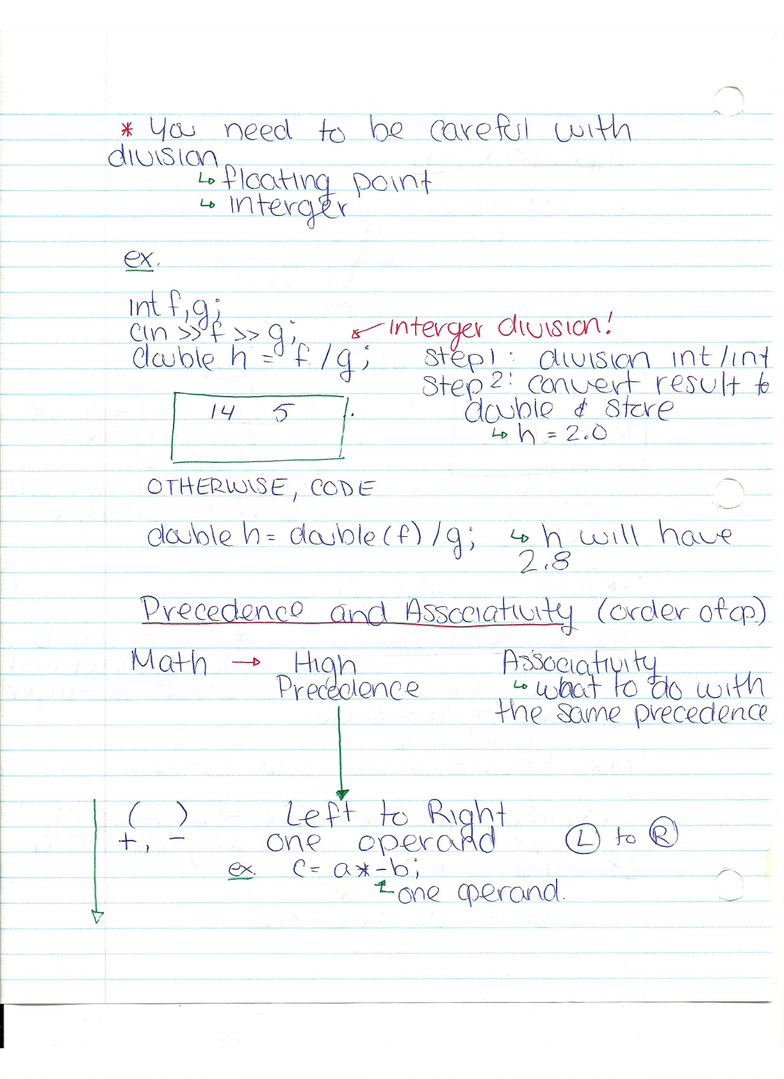 * You need to be careful with
division
↳ floating point
↳ interger
ex.
int f,g;
cin >> f >> g;
interger division!
double h = f /g;
Step 1: division int/int
Step 2: convert result to
double & store
↳ h = 2.0
14 5
OTHERWISE, CODE
double h = double(f) /g; ↳ h will have
2.8
Precedence and Associativity (order of op.)
Math → High
Precedence
Associativity
↳ what to do with
the same precedence
( ) Left to Right
+, - one operand L to R
ex. c = a*-b;
one operand.